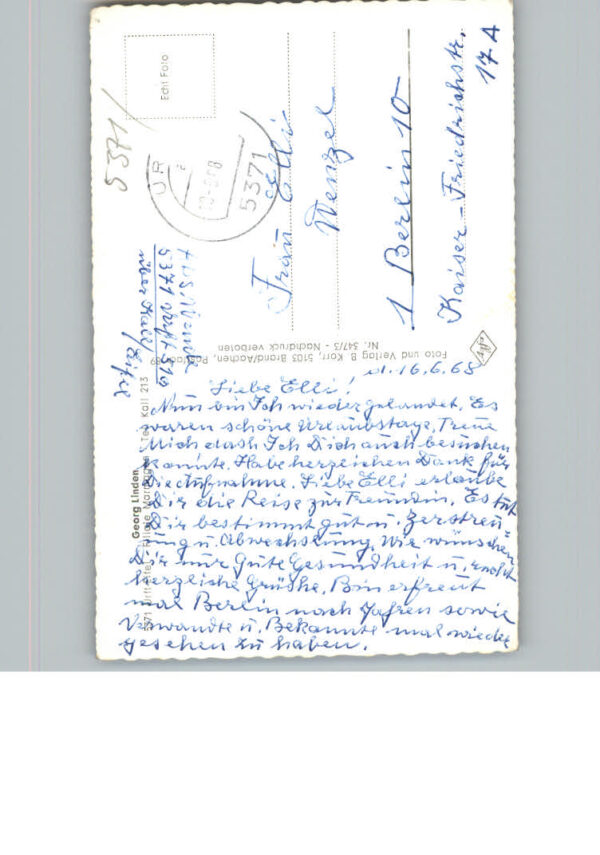 Echt Foto
5371
5371
UR
Frau Elli
Wenzel
1 Berlin 10
Kaiser-Friedrichstr.
17 A
Abs.
5371
über Kall/Eifel
Foto und Verlag B Korr, 5103 Brand/Aachen,
Nr. 347/3 - Nachdruck verboten
Georg Linden
Tel. Kall 213
d. 16.6.68
Liebe Elli!
Nun bin Ich wieder gelandet. Es
waren schöne Urlaubstage, Freue
Mich dash Ich Dich auch besuchen
konnte. Habe herzlichen Dank für
Die Aufnahme. Liebe Elli erlaube
Dir die Reise zur Freundin. Es tut
Dir bestimmt gut u. Zerstreu=
ung u. Abwechslung. Wir wünschen
Dir nur gute Gesundheit u.
herzliche Grüshe. Bin erfreut
mal Berlin nach Jahren sowie
Verwandte u. Bekannte mal wieder
gesehen zu haben.